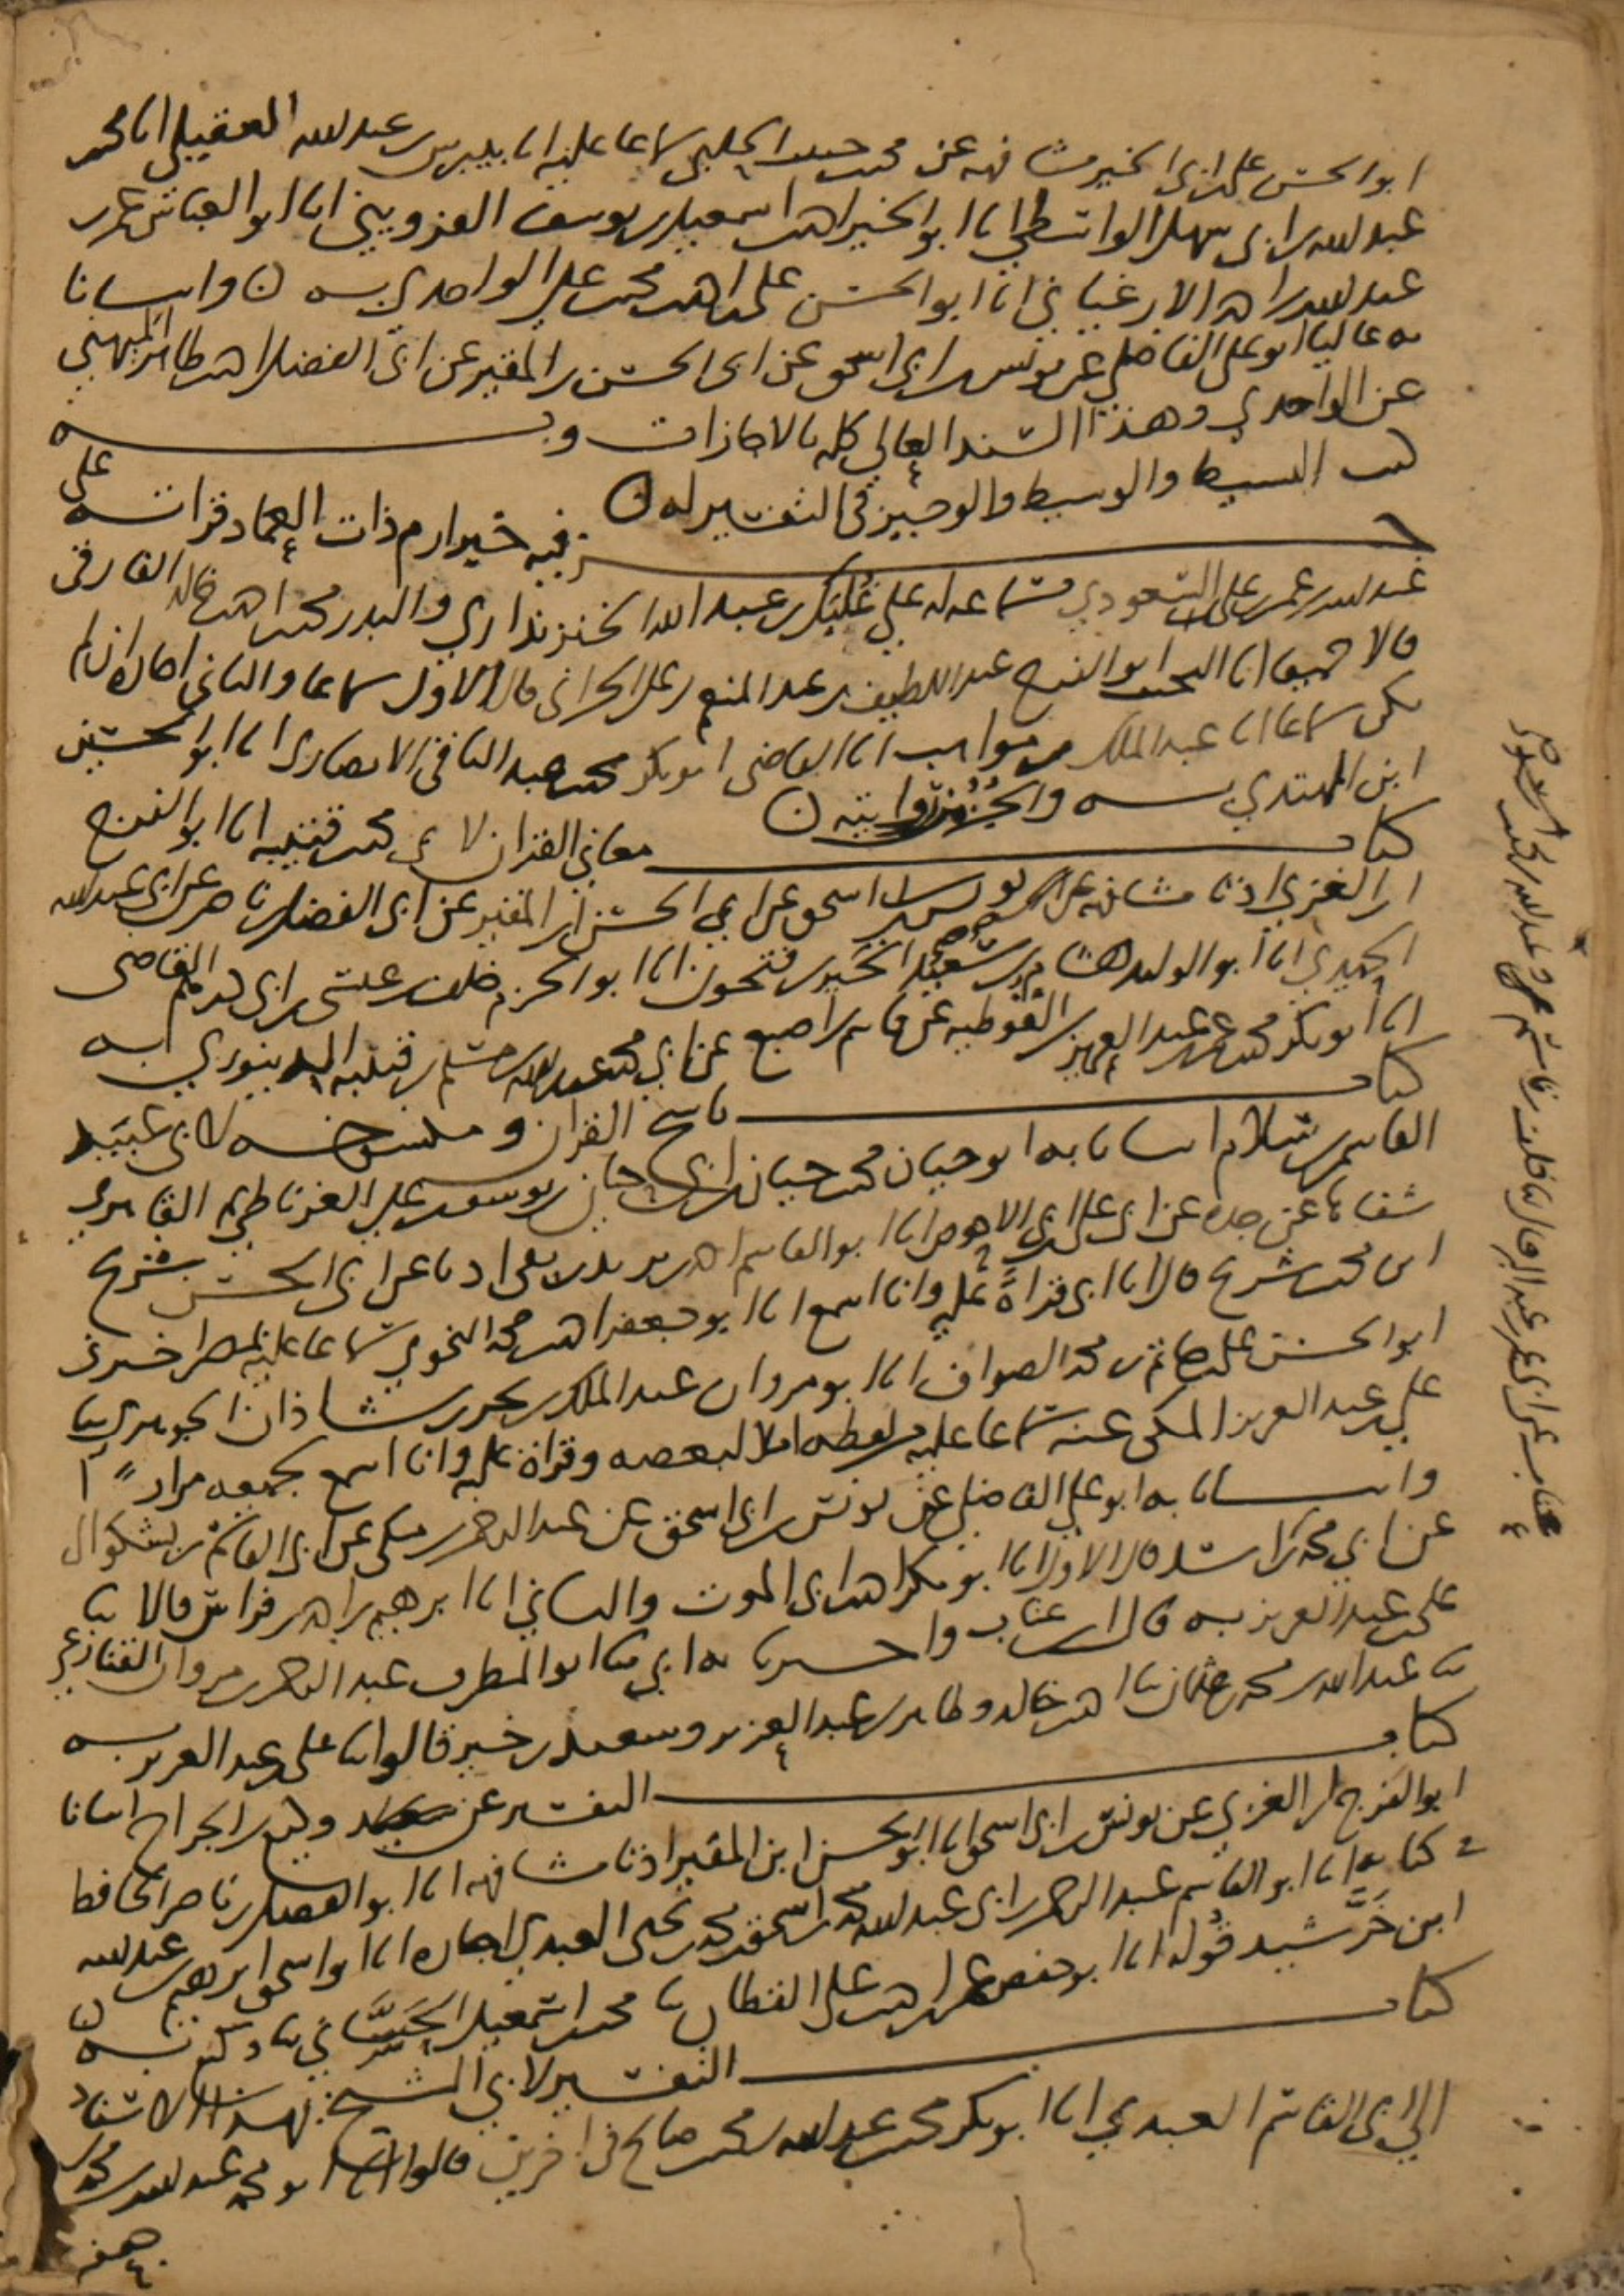 ابو الحسن علي بن ابي الخير مشافهة عن محمد حبيب الحلبي سماعا عليه انا بيبرس بن عبد الله العقيلي انا محمد
عبد الله بن ابي سهل الواسطي انا ابو الخير احمد بن اسمعيل بن يوسف القزويني انا ابو العباس عمر بن
عبد الله بن احمد الارغياني انا ابو الحسن علي بن احمد بن محمد بن علي الواحدي به ن وانبانا
به عاليا ابو علي الفاضلي عن يونس بن ابي اسحق عن ابي الحسن بن المقير عن ابي الفضل احمد بن طاهر الميهني
عن الواحدي وهذا السند العالي كله بالاجازات وبه
كتب البسيط والوسيط والوجيز في التفسير له ن
جزء فيه خبر ارم ذات العماد قراته على
عبد الله بن عمر بن علي السعودي بسماعه له على غلبك بن عبد الله الخزنداري والبدر محمد بن احمد بن خالد الفارقي
قالا جميعا انا النجيب ابو الفرج عبد اللطيف بن عبد المنعم بن علي الحراني قال الاول سماعا والثاني اجازة ان لم
يكن سماعا انا عبد الملك بن مواهب انا القاضي ابو بكر محمد بن عبد الباقي الانصاري انا ابو الحسين
ابن المهتدي به والجزء من روايته ن
كتاب معاني القران لابي محمد بن قتيبة انا ابو الفرج
ابن الغزي اذنا مشافهة عن يونس بن ابي اسحق عن ابي الحسن بن المقير عن ابي الفضل بن ناصر عن ابي عبد الله
الحميدي انا ابو الوليد هشام بن سعيد الخير بن فتحون انا ابو الحزم خلف بن عيسى بن ابي درهم القاضي
انا ابو بكر محمد بن عمر بن عبد العزيز بن القوطية عن قاسم بن اصبغ عن ابي محمد عبد الله بن مسلم بن قتيبة الدينوري به
كتاب ناسخ القران ومنسوخه لابي عبيد
القاسم بن سلام انبانا به ابو حيان محمد بن حيان بن ابي حيان بن يوسف بن علي الغرناطي ثم القاهري
شفاها عن جده عن ابي علي بن ابي الاحوص انا ابو القاسم احمد بن يزيد بن بقي اذنا عن ابي الحسن شريح
ابن محمد بن شريح قال انا ابي قراة عليه وانا اسمع انا ابو جعفر احمد بن محمد النحوي سماعا عليه بمصر اخبرني
ابو الحسن علي بن حاتم بن محمد الصواف انا ابو مروان عبد الملك بن بحر بن شاذان الجوهري ثنا
علي بن عبد العزيز المكي عنه سماعا عليه من لفظه املا لبعضه وقراة عليه وانا اسمع بجميعه مرارا
وانبانا به ابو علي الفاضلي عن يونس بن ابي اسحق عن عبد الرحمن بن مكي عن ابي القاسم بن بشكوال
عن ابي محمد بن عتاب قال الاول انا ابو بكر احمد بن ابي الموت والثاني انا ابرهيم بن احمد بن فراس قالا ثنا
علي بن عبد العزيز به قال ابن عتاب واخبرنا به ابي ثنا ابو المطرف عبد الرحمن بن مروان القنازعي
ثنا عبد الله بن محمد بن عثمان ثنا احمد بن خالد وطاهر بن عبد العزيز وسعيد بن خمير قالوا ثنا علي بن عبد العزيز به
كتاب التفسير عن وكيع بن الجراح انبانا
ابو الفرج بن الغزي عن يونس بن ابي اسحق انا ابو الحسن ابن المقير اذنا مشافهة انا ابو الفضل بن ناصر الحافظ
في كتابه انا ابو القاسم عبد الرحمن بن ابي عبد الله محمد بن اسحق بن محمد بن يحيى العبدي اجازة انا ابو اسحق ابرهيم بن عبد الله
ابن خرشيد قوله انا ابو حفص عمر بن احمد بن علي القطان ثنا محمد بن اسمعيل الحساني ثنا وكيع به ن
كتاب التفسير لابي الشيخ بهذا الاسناد
الى ابي القاسم العبدي انا ابو بكر محمد بن عبد الله بن محمد بن صالح في اخرين قالوا انا ابو محمد عبد الله بن محمد بن
جعفر